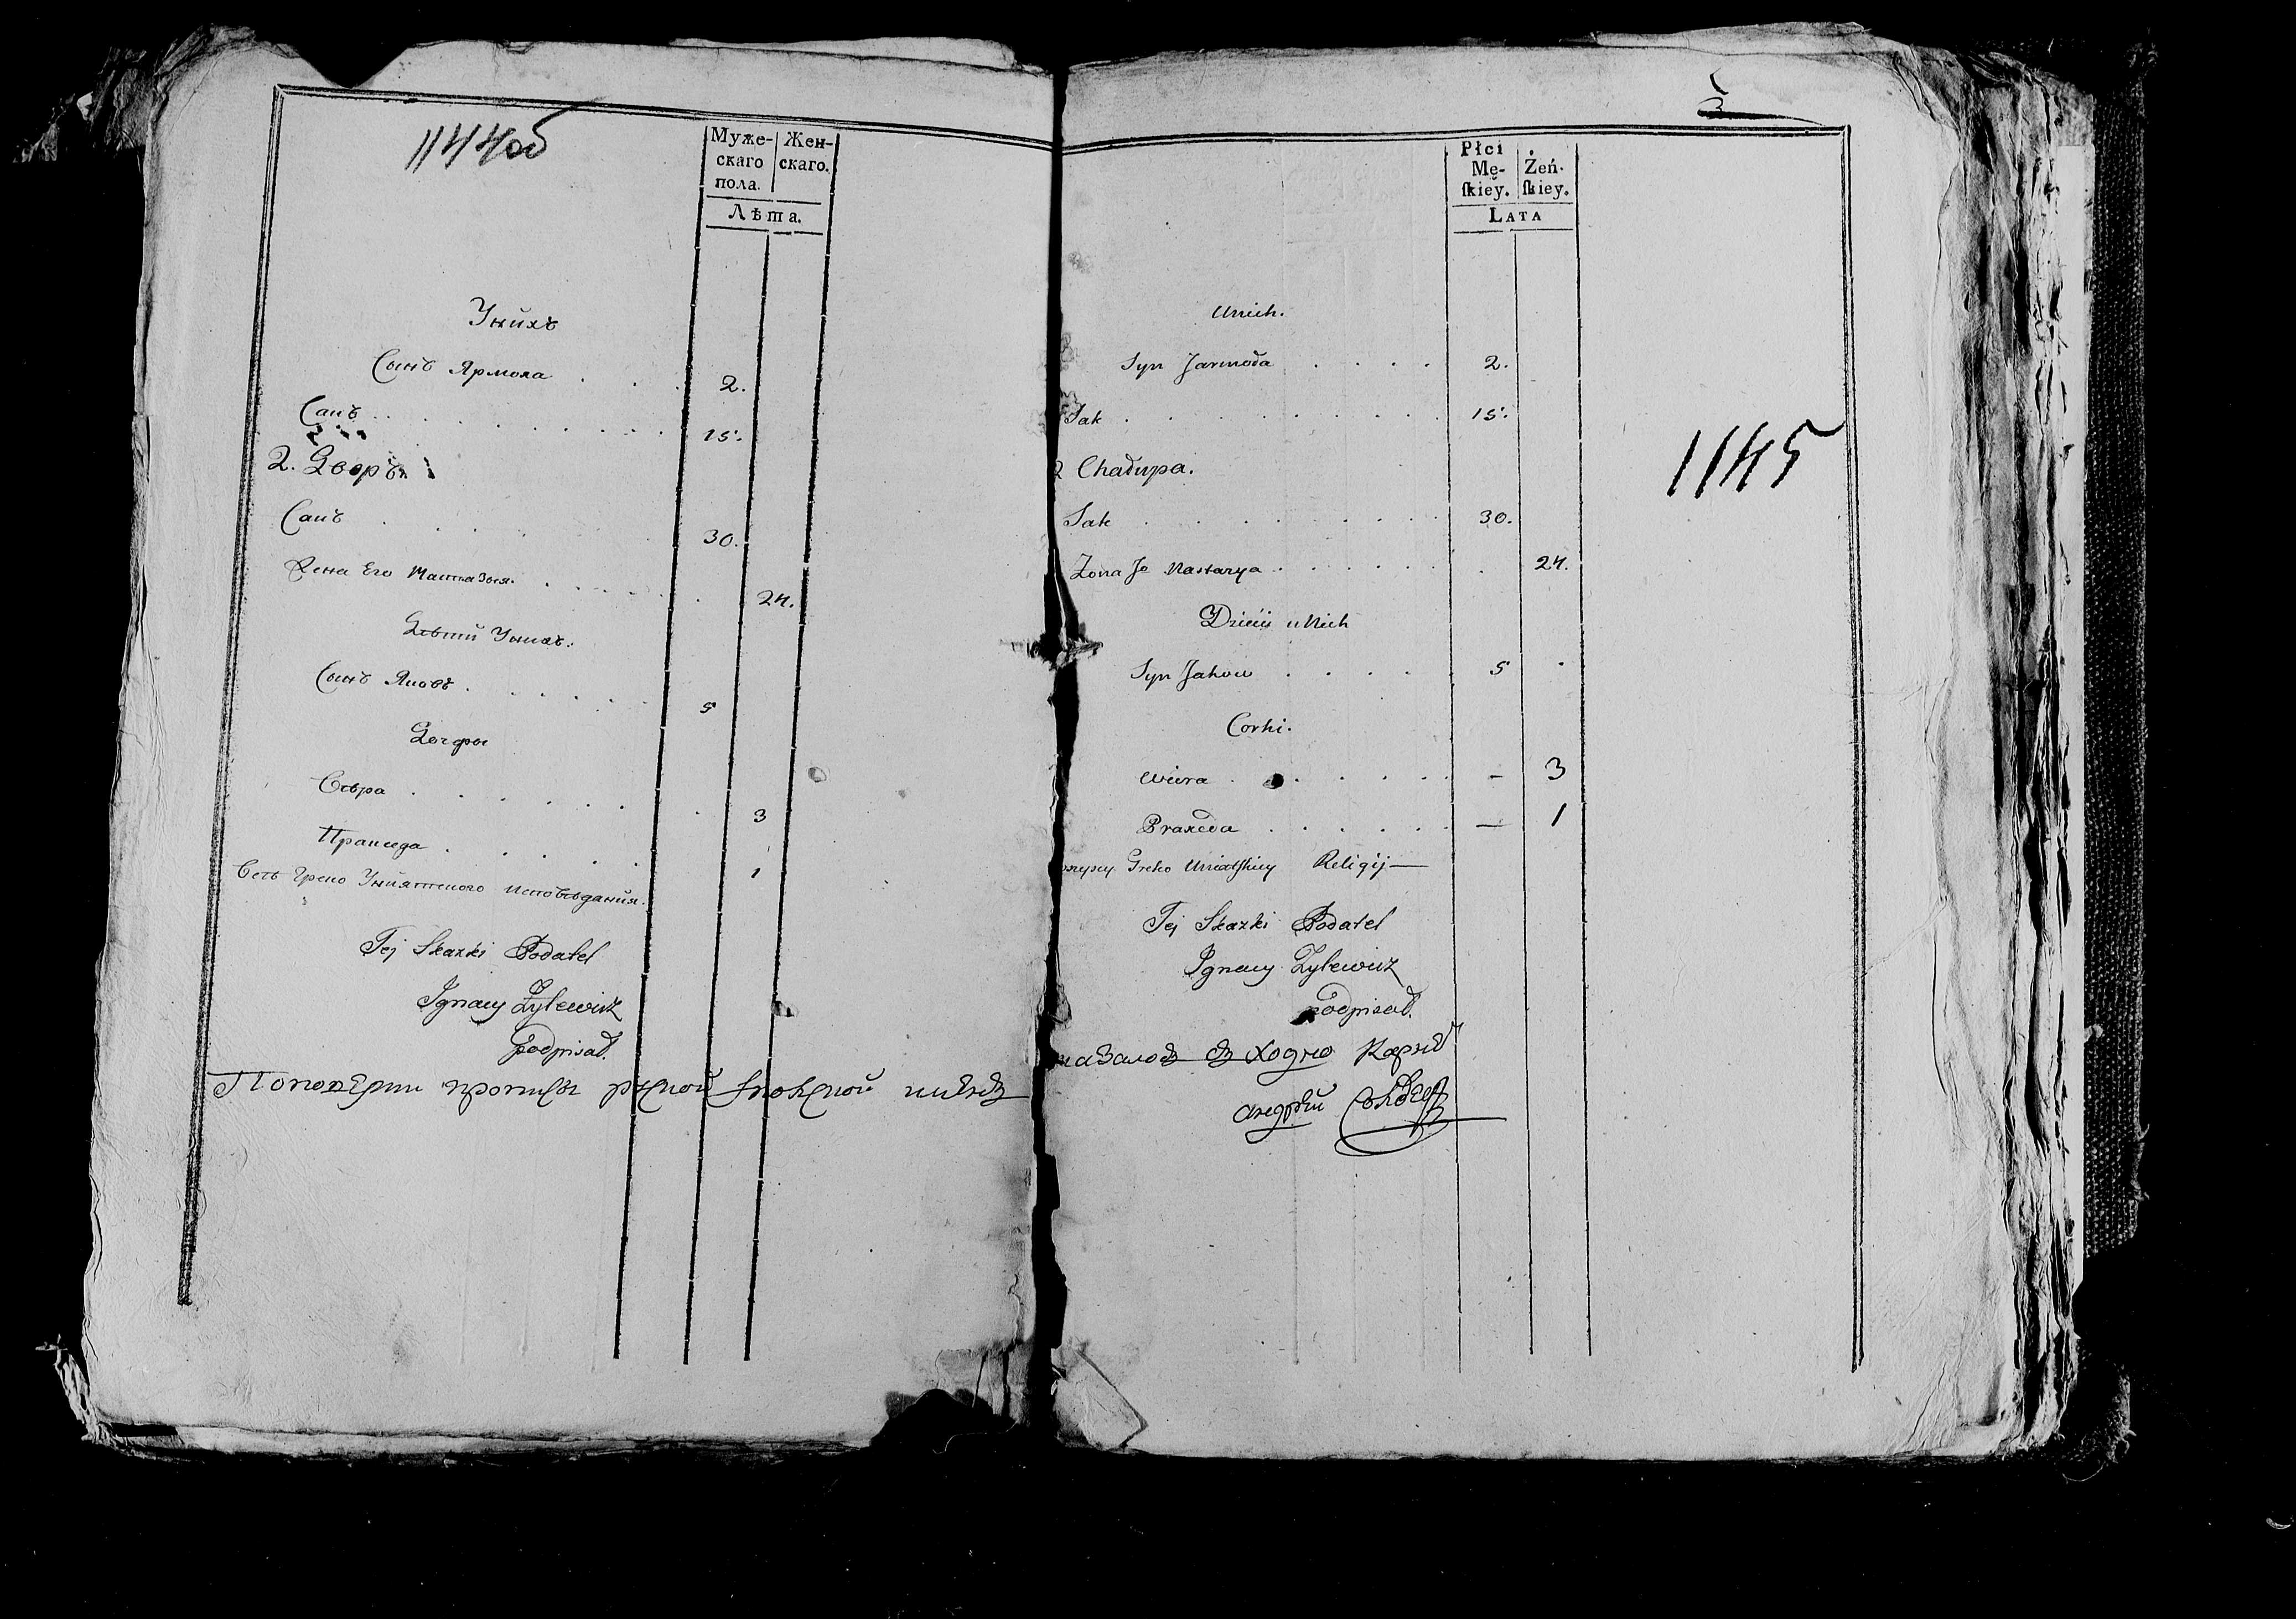 1144об
Муже-
скаго
пола.
Жен-
скаго.
Лѣта.
Унихъ
Сынъ Ярмола . . . 2.
Сакъ . . . . . . . . 15.
2. Дворъ
Сакъ . . . . . 30.
Жена Его Настазыя . . . . . 24.
Дѣти Унихъ.
Сынъ Яковъ . . . . . 5
Дочеры
Вѣра . . . . . . 3
Праксeда . . . . . 1
Весь Греко Униятского исповѣдания.
Tej Skazki Podatel
Ignacy Zylewicz
podpisał.
3
Płci
Mę-
ſkiey.
Żeń-
ſkiey.
Lata
Unich.
Syn Jarmoła . . . . 2.
Sak . . . . . . . . 15.
2 Chałupa.
Sak . . . . . . . 30.
Zona Je Nastazya . . . . . . 24.
Dzieci u Nich
Syn Jakow . . . . 5
Corki.
Wiera . . . . . . – 3
Praxeda . . . . . . — 1
Greko Uniatſkiey Religij —
Tej Skazki Podatel
Ignacy Zylewicz
podpisał.
Андрей
1145